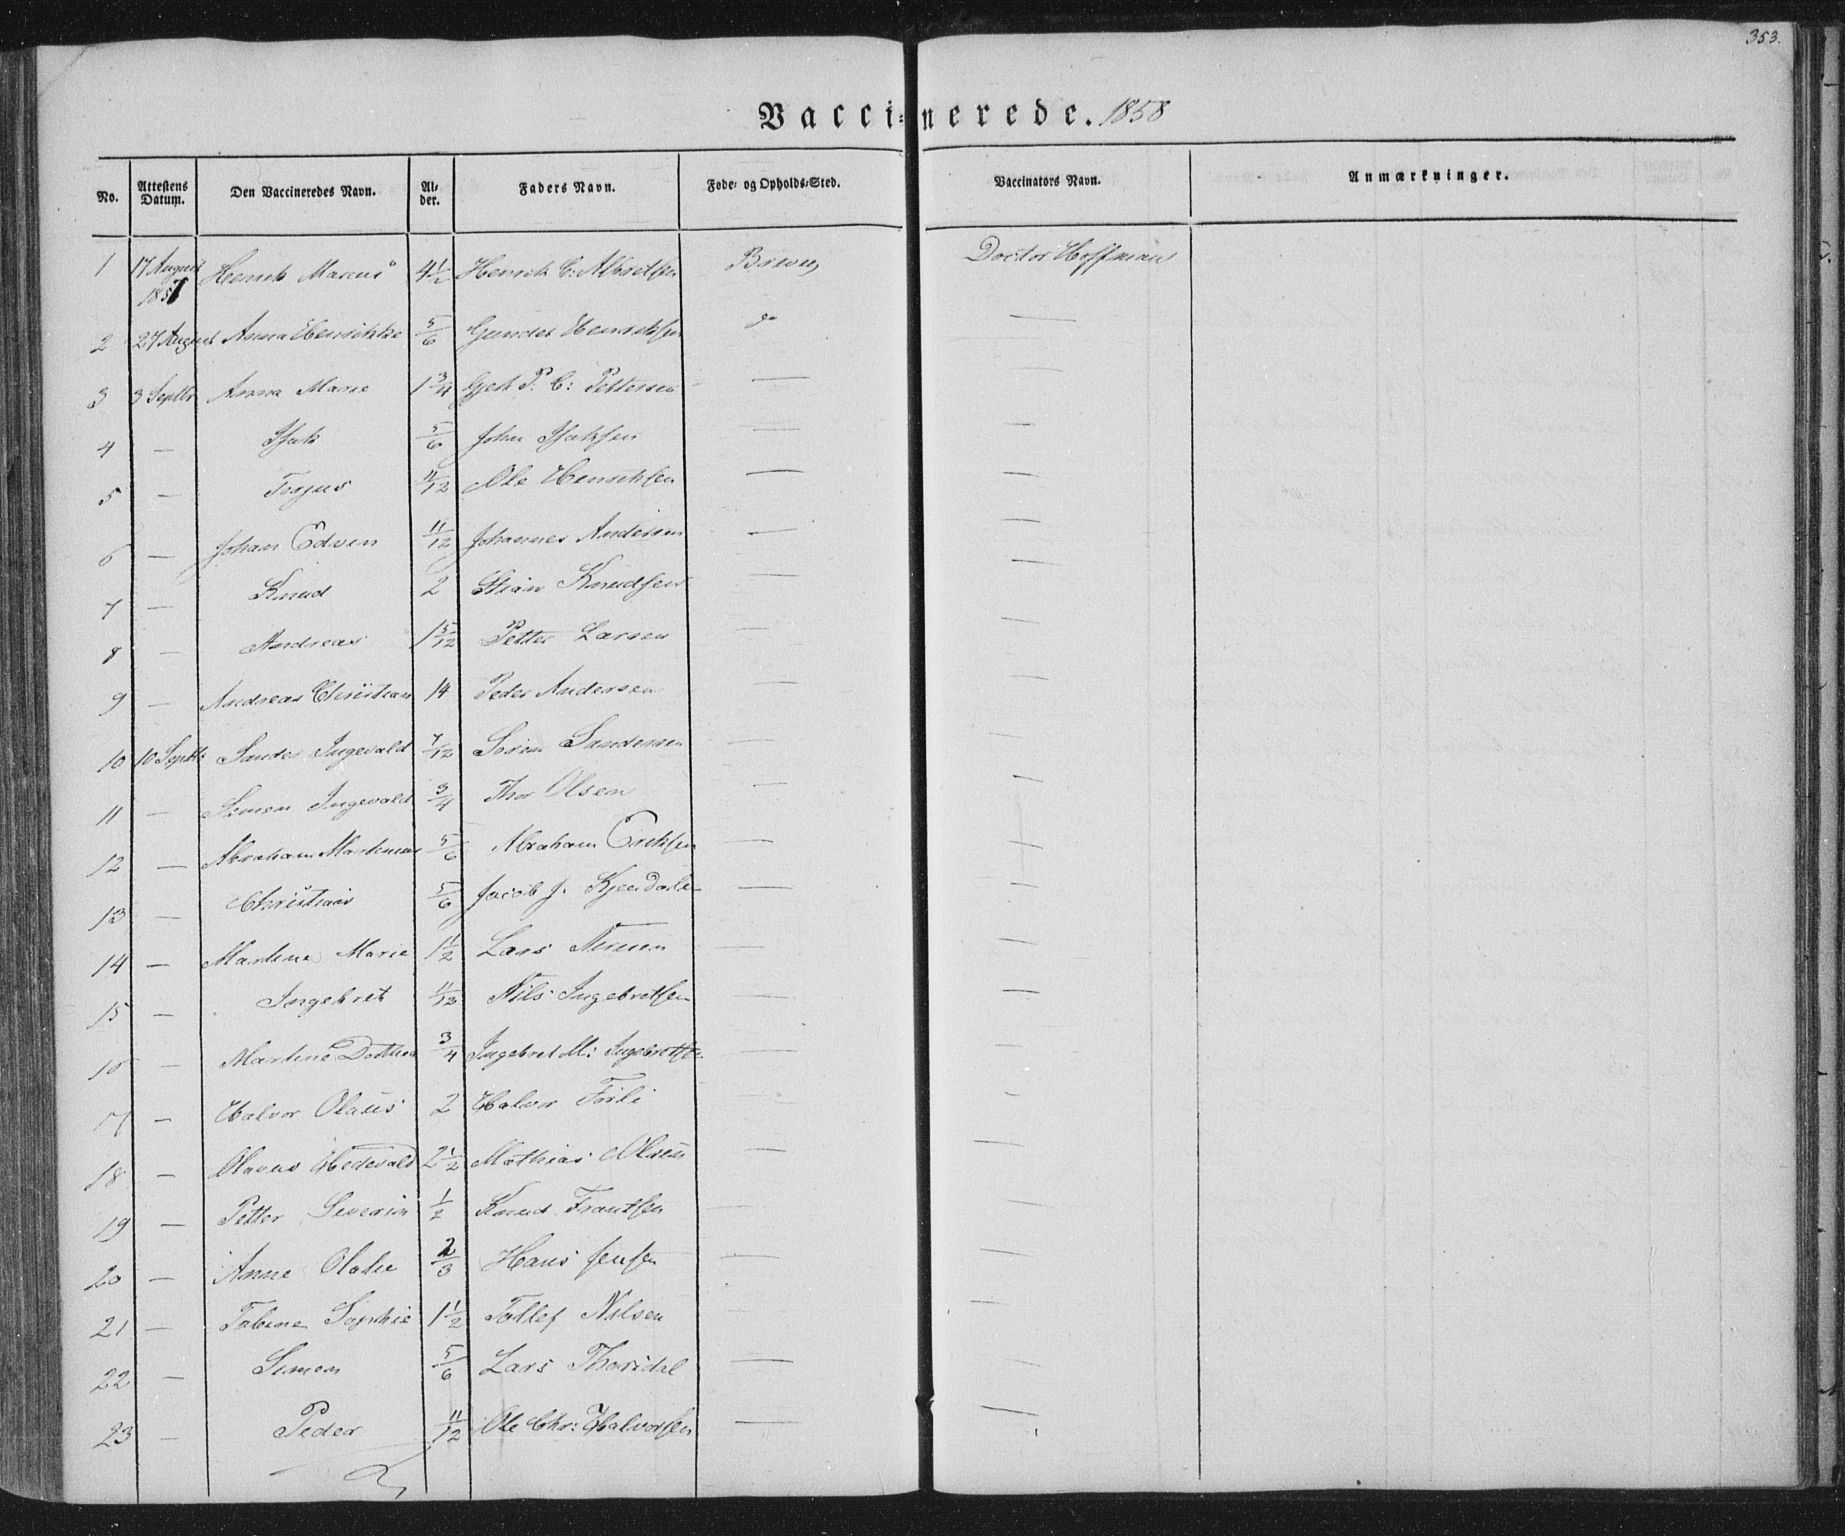 353.
Vaccinerede. 1858
No. Attestens Datum. Den Vaccineredes Navn. Alder. Faders Navn. Føde- og Opholds-Sted. Vaccinators Navn. Anmærkninger.
1 17 August 1857 Henrik Marcus 4 1/2 Henrik C: Albretsen Brevig Doctor Hoffman
2 27 August Anna Henrikke 5/6 Gunder Henriksen do —
3 3 Septbr Anna Marie 1 3/4 P. C: Pettersen — —
4 — Isak 5/6 John Isaksen — —
5 — Torjus 11/12 Ole Henriksen — —
6 — Johan Edven 11/12 Johannes Andersen — —
7 — Knud 2 Knudsen — —
8 — Andreas 1 5/12 Petter Larsen — —
9 — Andreas Christian 14 Peder Andersen — —
10 10 Septbr Sander Ingevald 7/12 Søren Sandersen — —
11 — Simen Ingevald 3/4 Thor Olsen — —
12 — Abraham Martinius 5/6 Abraham Eriksen — —
13 — Christian 5/6 Jacob J. Kjendal — —
14 — Martine Marie 1 1/2 Lars — —
15 — Ingebret 11/12 Nils Ingebretsen — —
16 — Martine Dothea 3/4 Ingebret M: Ingebretsen — —
17 — Halvor Olaus 2 Halvor — —
18 — Olavus 2 1/2 Mathias Olsen — —
19 — Petter Severin 1/2 Knud Frantsen — —
20 — Anne 2/3 Hans Jensen — —
21 — Tabine Sophie 1 1/2 Tollef Nilsen — —
22 — Simen 5/6 Lars Thoridal — —
23 — Peder 11/12 Ole Chr: Halvorsen — —